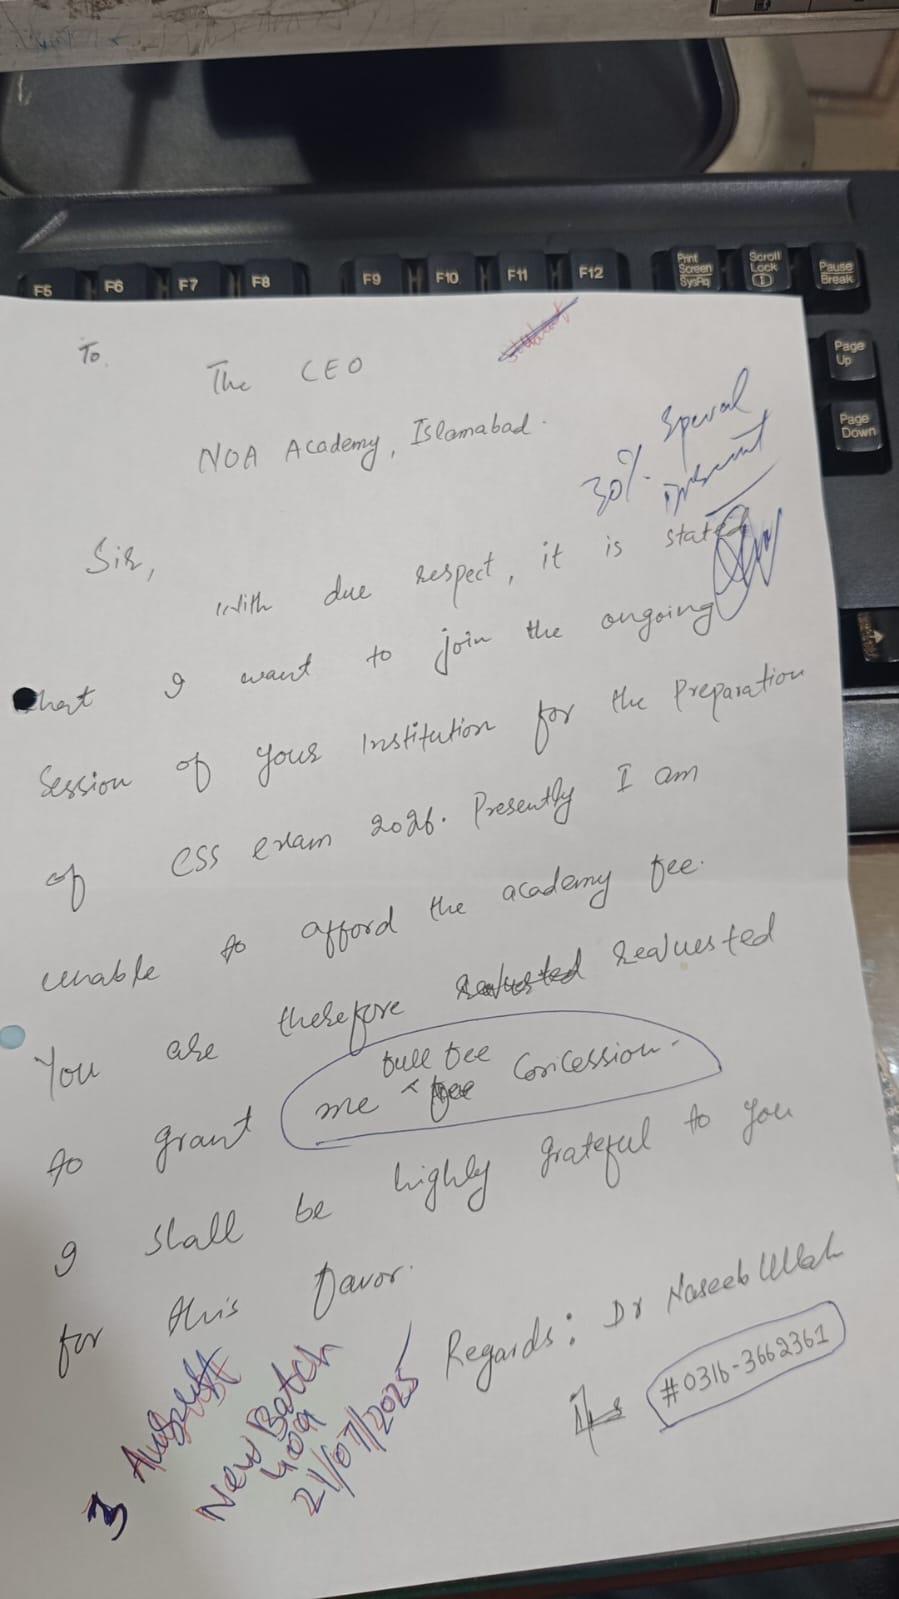 F5 F6 F7 F8 F9 F10 F11 F12
Print Screen SysRq
Scroll Lock
Pause Break
Page Up
Page Down
To,
The CEO
NOA Academy, Islamabad.
30% Special
Discount
Sir,
With due respect, it is stated
that I want to join the ongoing
Session of your Institution for the Preparation
of CSS exam 2026. Presently I am
unable to afford the academy fee.
You are therefore requested requested
full fee
to grant me fee Concession.
I shall be highly grateful to you
for this favor.
Regards: Dr Naseeb Ullah
#0316-3662361
3 August
New Batch
409
21/07/2025